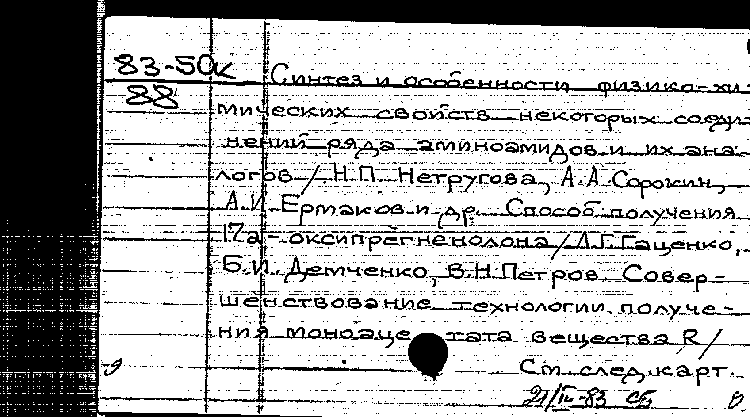 83-50к
88
Синтез и особенности физико-хи-
мических свойств некоторых соеди-
нений ряда аминоамидов и их ана-
логов / Н.П. Нетругова, А.А. Сорокин,
А.И. Ермаков и др. Способ получения
17а-оксипрегненолона / Л.Г. Гаценко,
Б.И. Демченко, В.Н. Петров. Совер-
шенствование технологии получе-
ния моноаце тата вещества R /
См. след. карт.
21/III-83